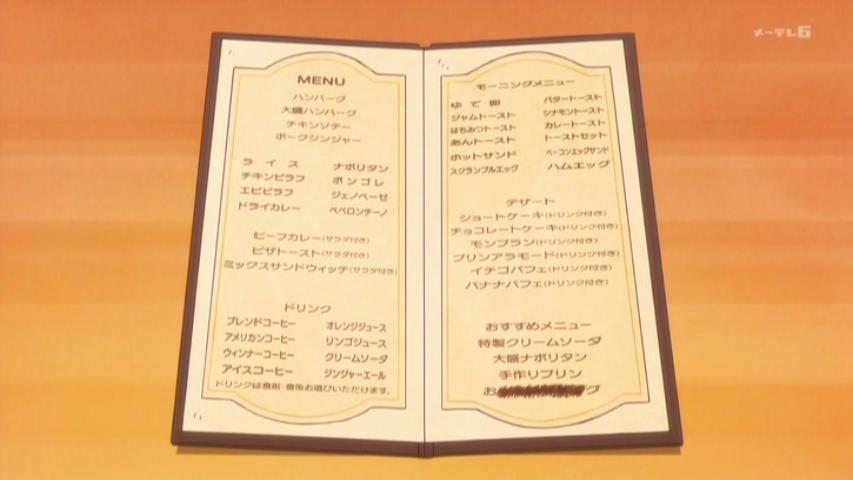 メ～テレ6
MENU
ハンバーグ
大盛ハンバーグ
チキンソテー
ポークジンジャー
ライス ナポリタン
チキンピラフ ボンゴレ
エビピラフ ジェノベーゼ
ドライカレー ペペロンチーノ
ビーフカレー(サラダ付き)
ピザトースト(サラダ付き)
ミックスサンドウィッチ(サラダ付き)
ドリンク
ブレンドコーヒー オレンジジュース
アメリカンコーヒー リンゴジュース
ウィンナーコーヒー クリームソーダ
アイスコーヒー ジンジャーエール
ドリンクは食前・食後お選びいただけます。
モーニングメニュー
ゆで卵 バタートースト
ジャムトースト シナモントースト
はちみつトースト カレートースト
あんトースト トーストセット
ホットサンド ベーコンエッグサンド
スクランブルエッグ ハムエッグ
デザート
ショートケーキ(ドリンク付き)
チョコレートケーキ(ドリンク付き)
モンブラン(ドリンク付き)
プリンアラモード(ドリンク付き)
イチゴパフェ(ドリンク付き)
バナナパフェ(ドリンク付き)
おすすめメニュー
特製クリームソーダ
大盛ナポリタン
手作りプリン